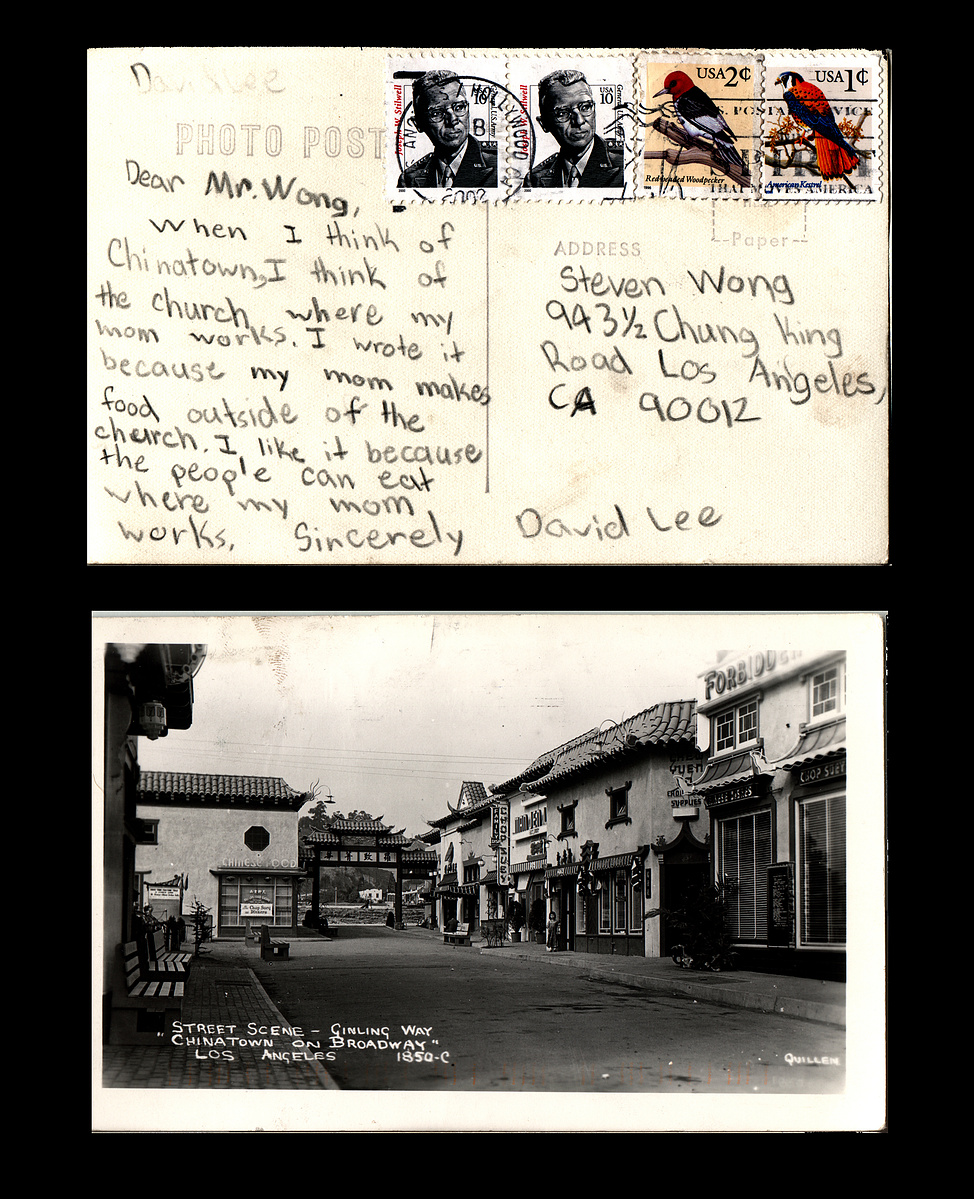 David Lee
PHOTO POST
Dear Mr. Wong,
When I think of
Chinatown, I think of
the church where my
mom works. I wrote it
because my mom makes
food outside of the
church. I like it because
the people can eat
where my mom
works. Sincerely David Lee
Joseph W. Stilwell
USA
10
General, U.S. Army
USA 2¢
Red-headed Woodpecker
USA 1¢
American Kestrel
THAT MOVES AMERICA
2002
Paper
ADDRESS
Steven Wong
943½ Chung King
Road Los Angeles,
CA 90012
FORBIDDEN
CHOP SUEY
CHINESE FOOD
CHOP SUEY
SUPPLIES
"STREET SCENE - GINLING WAY
CHINATOWN ON BROADWAY"
LOS ANGELES 1850-C
QUILLEN